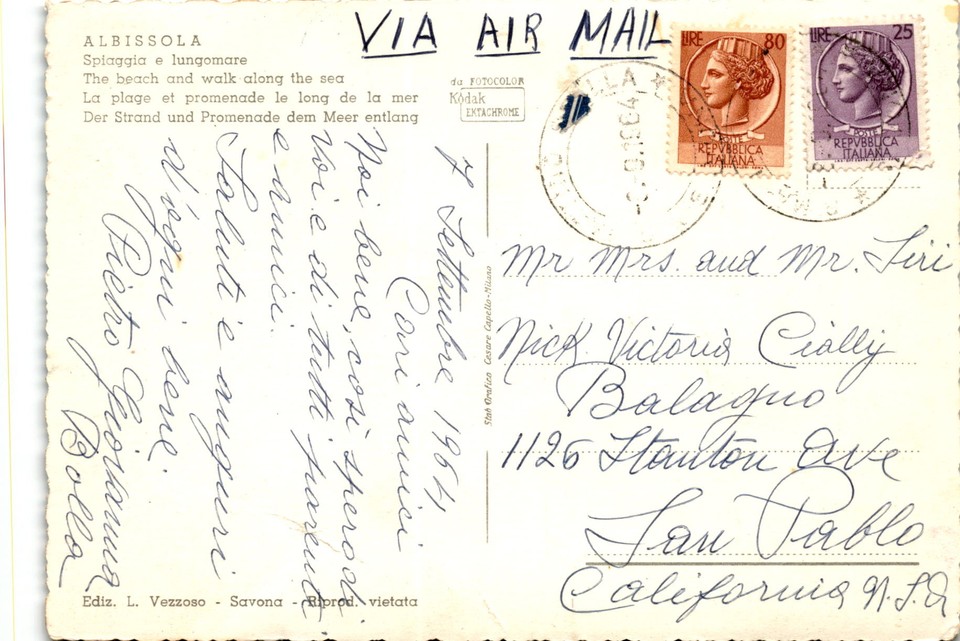 VIA AIR MAIL
ALBISSOLA
Spiaggia e lungomare
The beach and walk along the sea
La plage et promenade le long de la mer
Der Strand und Promenade dem Meer entlang
da FOTOCOLOR
Kodak
EKTACHROME
LIRE 80
POSTE
REPVBBLICA
ITALIANA
LIRE 25
POSTE
REPVBBLICA
ITALIANA
7 Settembre 1964
Cari amici
Noi bene, così spero di
voi e di tutti parenti
e amici.
Saluti e auguri
d'ogni bene.
Pietro Giovanna
Bolla
Stab Grafico Cesare Capello-Milano
Mr Mrs. and Mr. Siri
Nick Victoria Cially
Balagno
1126 Stanton Ave
San Pablo
California U.S.A
Ediz. L. Vezzoso - Savona - Riprod. vietata